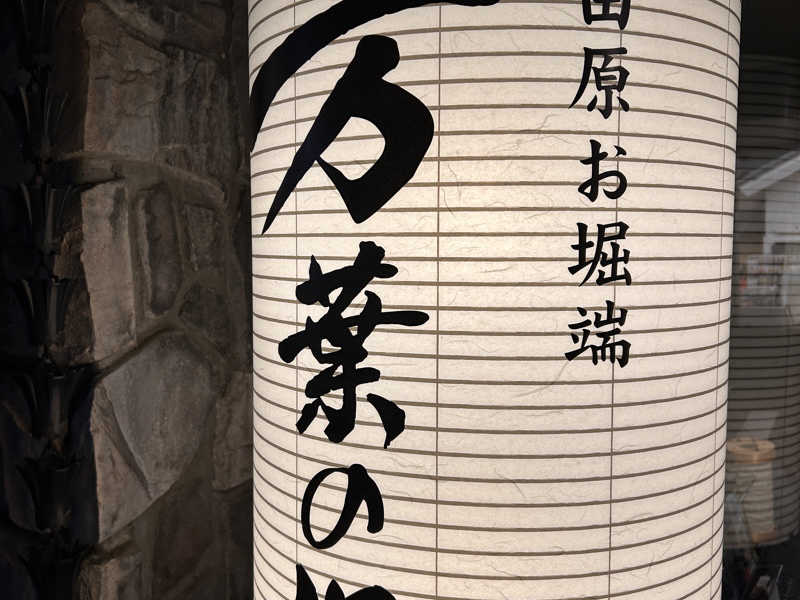 田原お堀端
万葉の